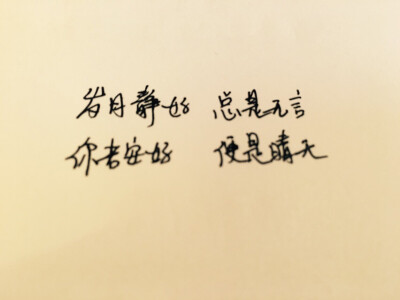 岁月静好 总是无言
你若安好 便是晴天